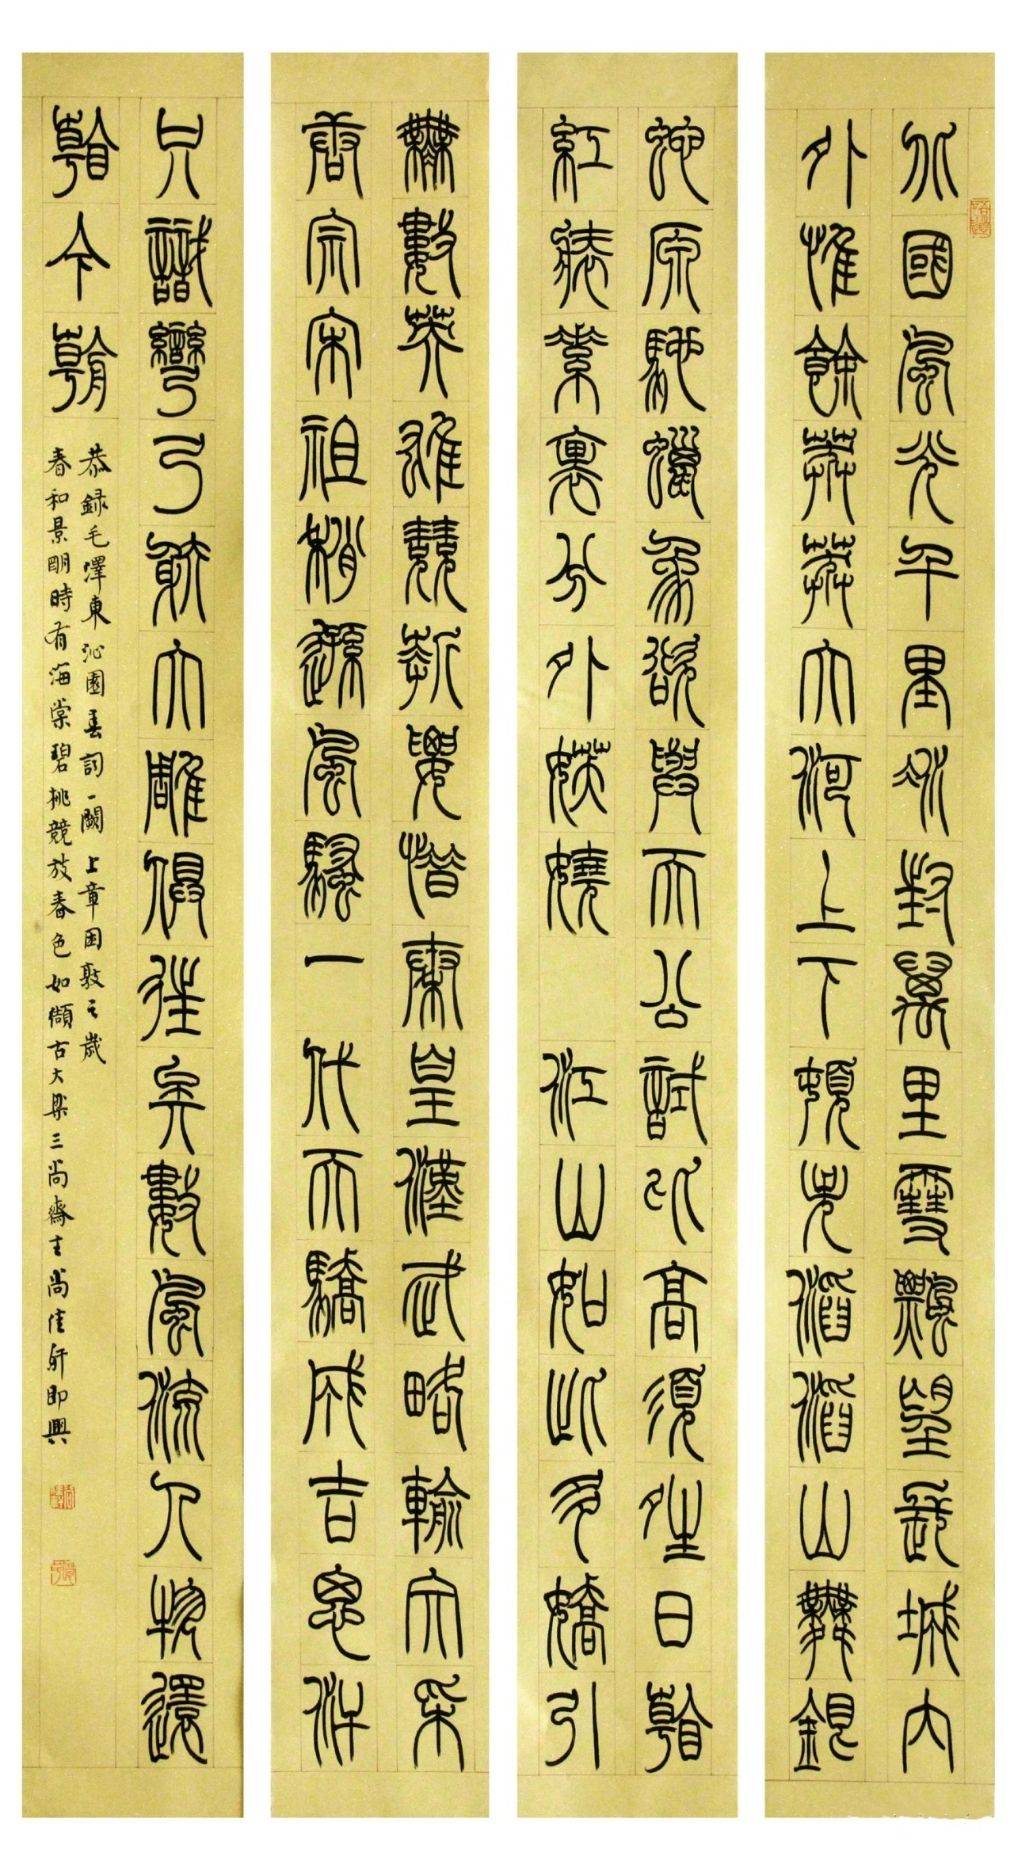 北國風光千里冰封萬里雪飄望長城内
外惟餘莽莽大河上下頓失滔滔山舞銀
蛇原馳蠟象欲與天公試比高須晴日看
紅裝素裹分外妖嬈 江山如此多嬌引
無數英雄競折腰惜秦皇漢武略輸文采
唐宗宋祖稍遜風騷一代天驕成吉思汗
只識彎弓射大雕俱往矣數風流人物還
看今朝
恭録毛澤東沁園春詞一闋 上章困敦之歲
春和景明時有海棠碧桃競放春色如纈古大梁三尚齋主尚佳軒即興